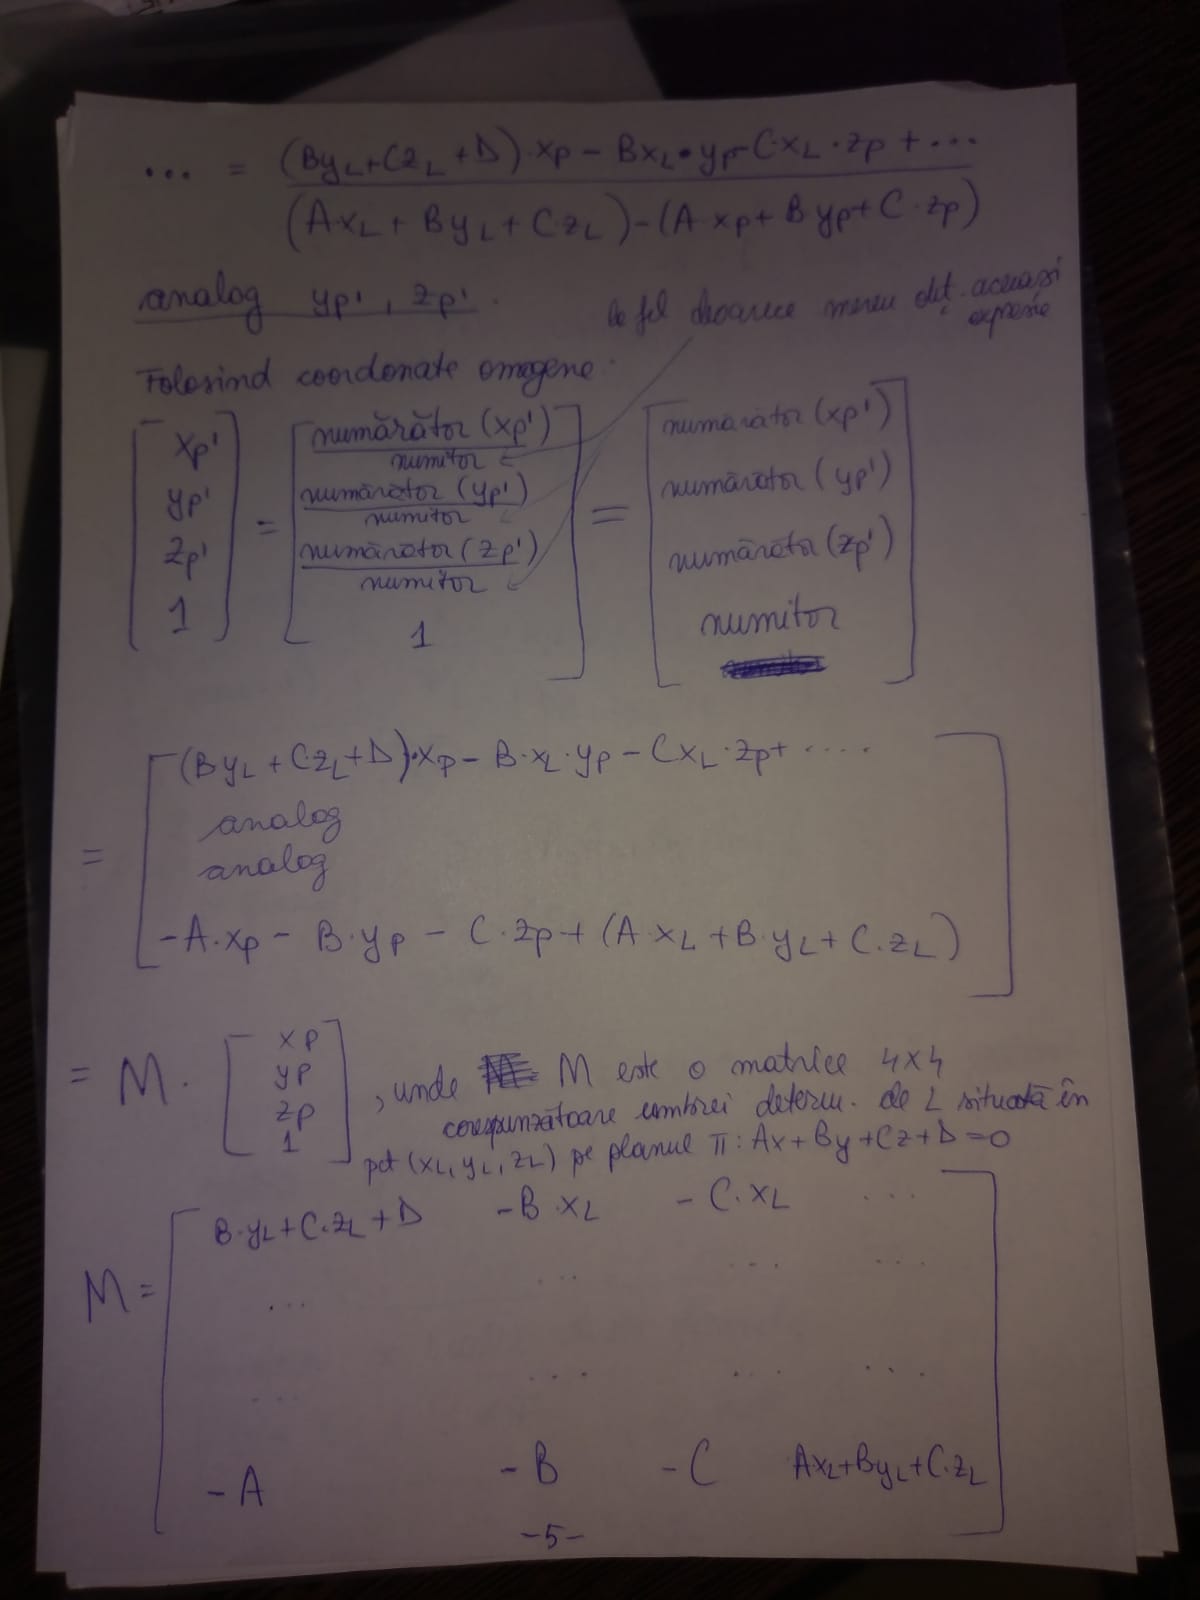 ... = (By_L+Cz_L+D)·x_P − Bx_L·y_P−Cx_L·z_P + ...
(A·x_L + By_L + C·z_L) − (A·x_P + B y_P + C·z_P)
analog y_P', z_P'.
la fel deoarece mereu obț. aceeași expresie
Folosind coordonate omogene:
[x_P' y_P' z_P' 1] = [numărător (x_P') / numitor
numărător (y_P') / numitor
numărător (z_P') / numitor
1] = [numărător (x_P')
numărător (y_P')
numărător (z_P')
numitor]
= [(By_L + C·z_L + D)·x_P − B·x_L·y_P − Cx_L·z_P + ....
analog
analog
−A·x_P − B·y_P − C·z_P + (A·x_L + B·y_L + C·z_L)]
= M · [x_P y_P z_P 1], unde M este o matrice 4x4
corespunzătoare umbrei determ. de L situată în
pct (x_L, y_L, z_L) pe planul π: Ax+By+Cz+D=0
M = [B·y_L+C·z_L+D −B·x_L −C·x_L ...
... ... ... ...
... ... ... ...
−A −B −C Ax_L+By_L+C·z_L]
−5−